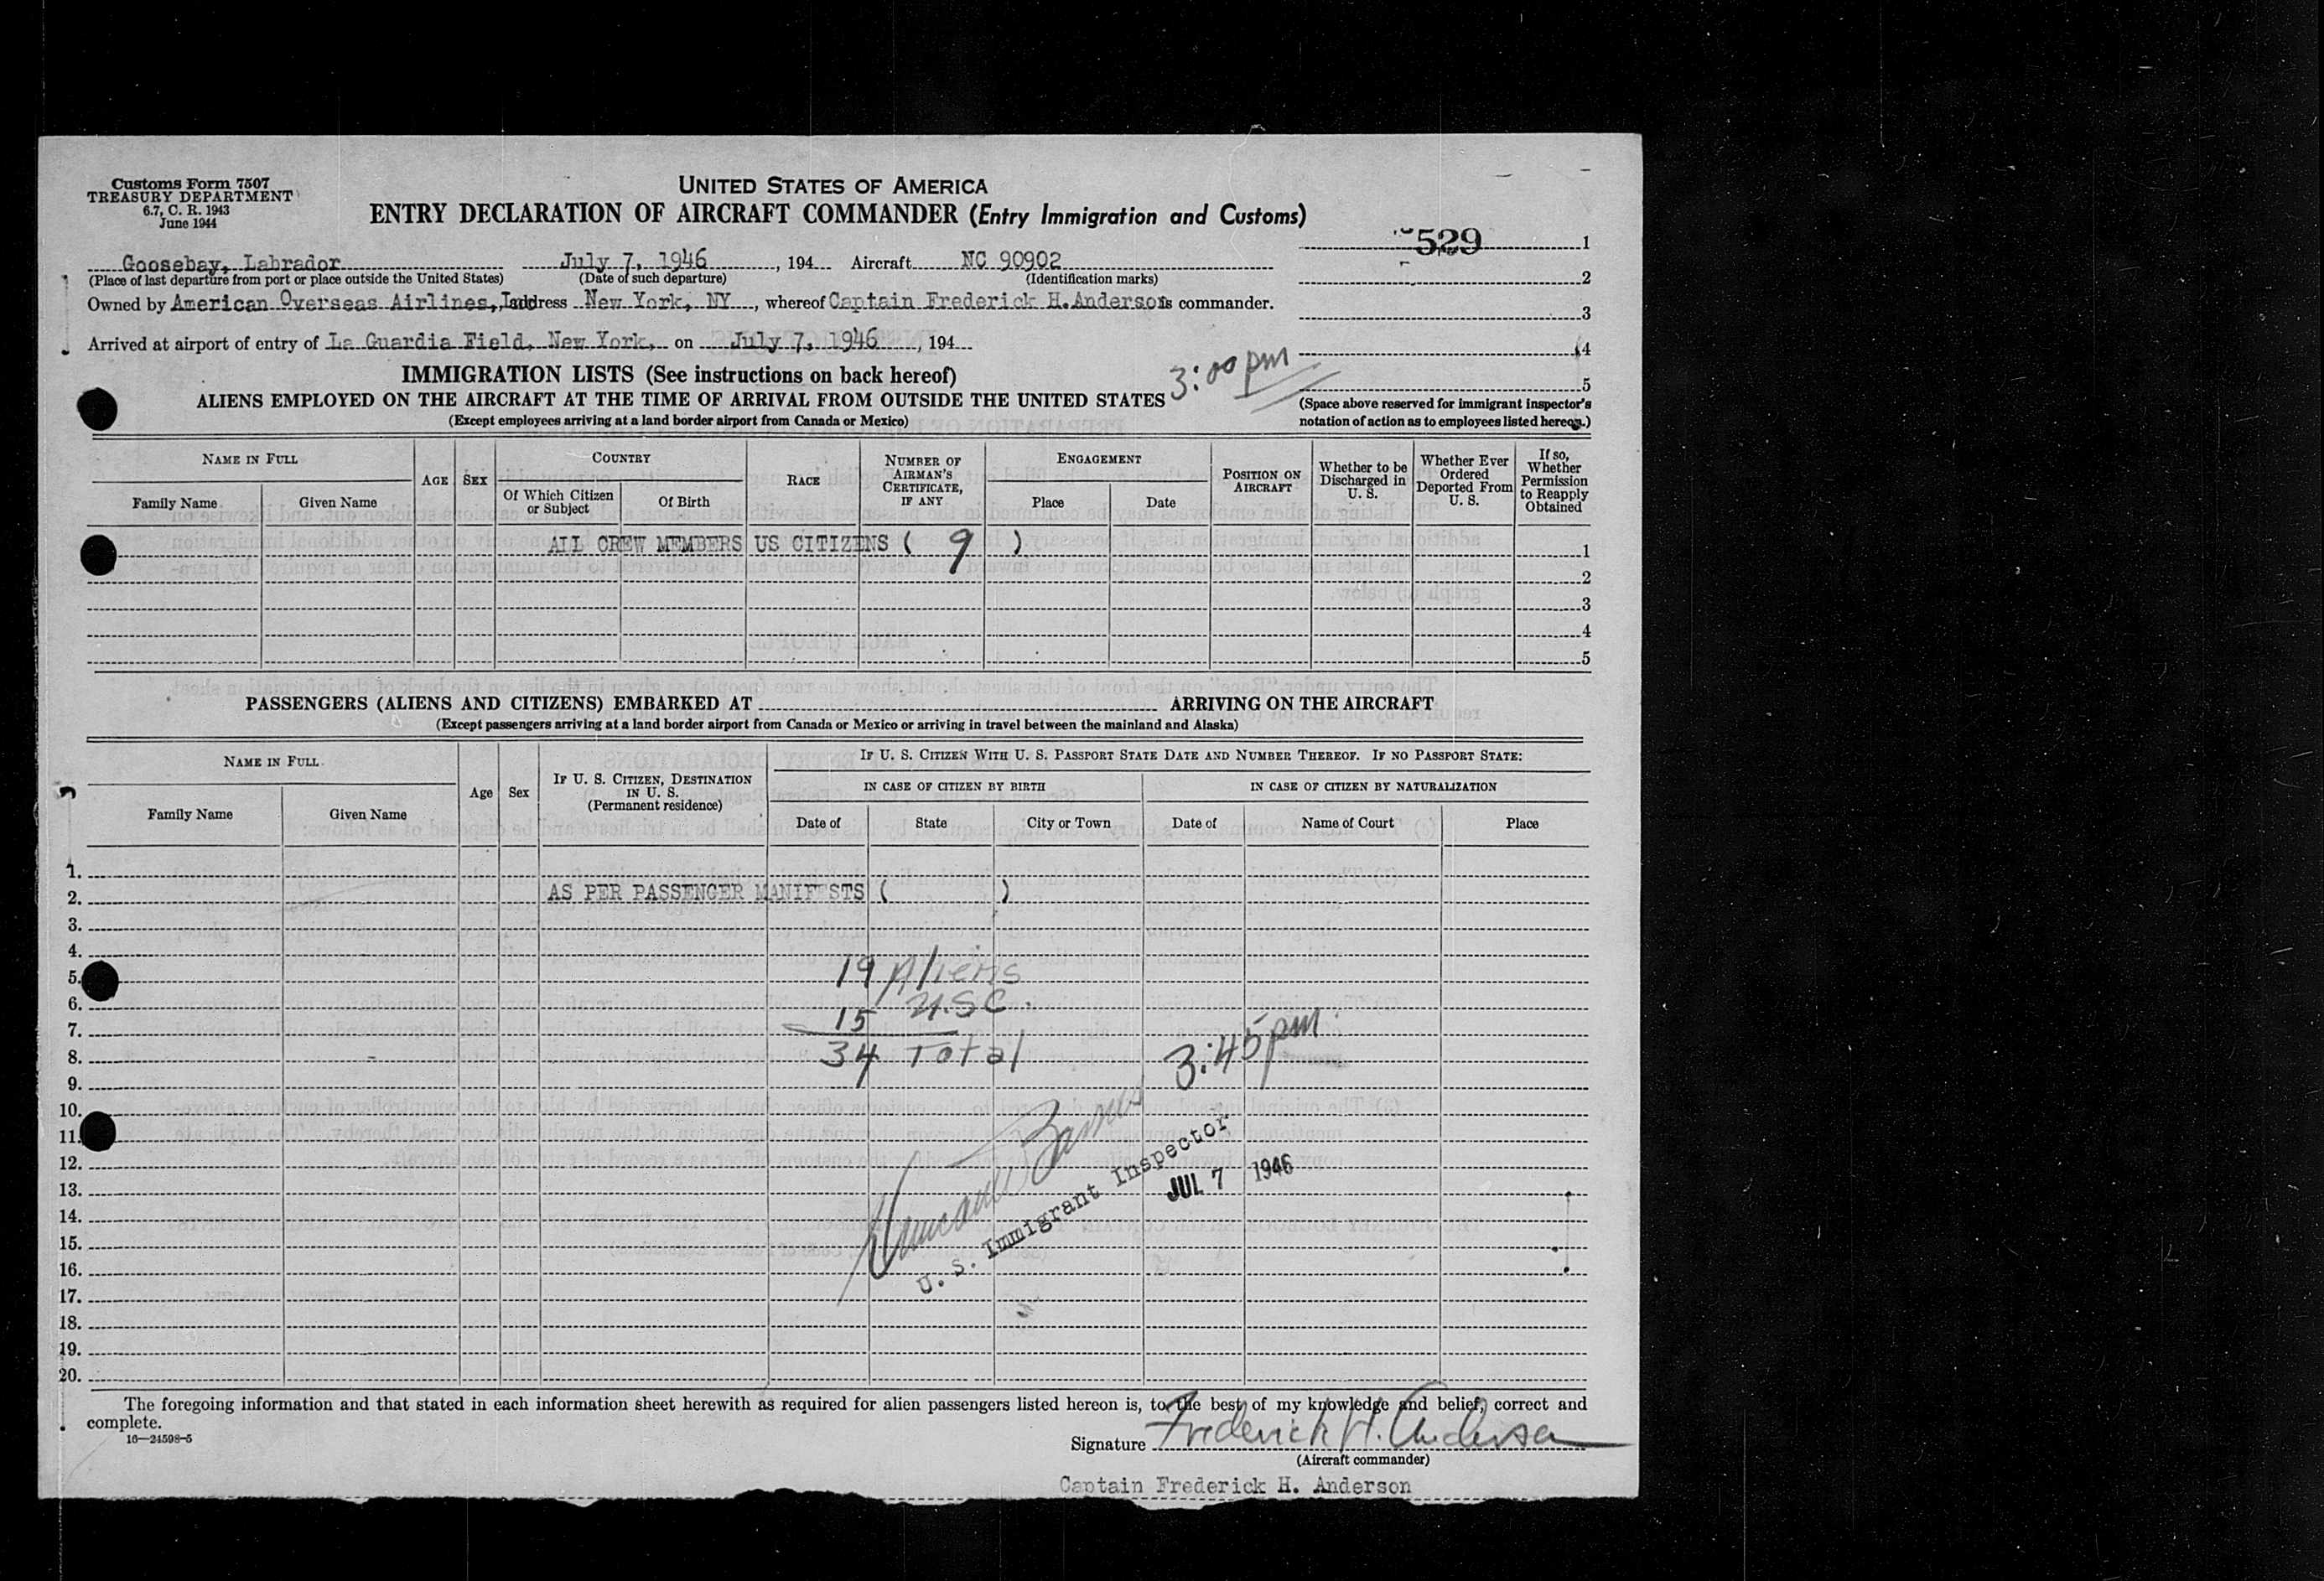 Customs Form 7507
TREASURY DEPARTMENT
6.7, C. R. 1943
June 1944
UNITED STATES OF AMERICA
ENTRY DECLARATION OF AIRCRAFT COMMANDER (Entry Immigration and Customs)
529
1
Goosebay, Labrador July 7, 1946, 194 Aircraft NC 90902
(Place of last departure from port or place outside the United States) (Date of such departure) (Identification marks)
2
Owned by American Overseas Airlines, Address New York, NY, whereof Captain Frederick H. Anderson is commander.
3
Arrived at airport of entry of La Guardia Field, New York, on July 7, 1946, 194
4
3:00 pm
5
IMMIGRATION LISTS (See instructions on back hereof)
ALIENS EMPLOYED ON THE AIRCRAFT AT THE TIME OF ARRIVAL FROM OUTSIDE THE UNITED STATES
(Except employees arriving at a land border airport from Canada or Mexico)
(Space above reserved for immigrant inspector's
notation of action as to employees listed hereon.)
NAME IN FULL
Family Name Given Name
AGE SEX
COUNTRY
Of Which Citizen or Subject Of Birth
RACE
NUMBER OF AIRMAN'S CERTIFICATE, IF ANY
ENGAGEMENT
Place Date
POSITION ON AIRCRAFT
Whether to be Discharged in U. S.
Whether Ever Ordered Deported From U. S.
If so, Whether Permission to Reapply Obtained
ALL CREW MEMBERS US CITIZENS ( 9 ) 1
2
3
4
5
PASSENGERS (ALIENS AND CITIZENS) EMBARKED AT ARRIVING ON THE AIRCRAFT
(Except passengers arriving at a land border airport from Canada or Mexico or arriving in travel between the mainland and Alaska)
NAME IN FULL
Family Name Given Name
Age Sex
IF U. S. CITIZEN, DESTINATION IN U. S.
(Permanent residence)
IF U. S. CITIZEN WITH U. S. PASSPORT STATE DATE AND NUMBER THEREOF. IF NO PASSPORT STATE:
IN CASE OF CITIZEN BY BIRTH IN CASE OF CITIZEN BY NATURALIZATION
Date of State City or Town Date of Name of Court Place
1.
2. AS PER PASSENGER MANIFESTS ( )
3.
4.
5. 19 Aliens
6.
7. 15 U.S.C.
8. 34 Total 3:45 pm
9.
10.
11.
12.
13. JUL 7 1946
14. U. S. Immigrant Inspector
15.
16.
17.
18.
19.
20.
The foregoing information and that stated in each information sheet herewith as required for alien passengers listed hereon is, to the best of my knowledge and belief, correct and
complete.
16—24598-5
Signature Frederick H. Anderson
(Aircraft commander)
Captain Frederick H. Anderson